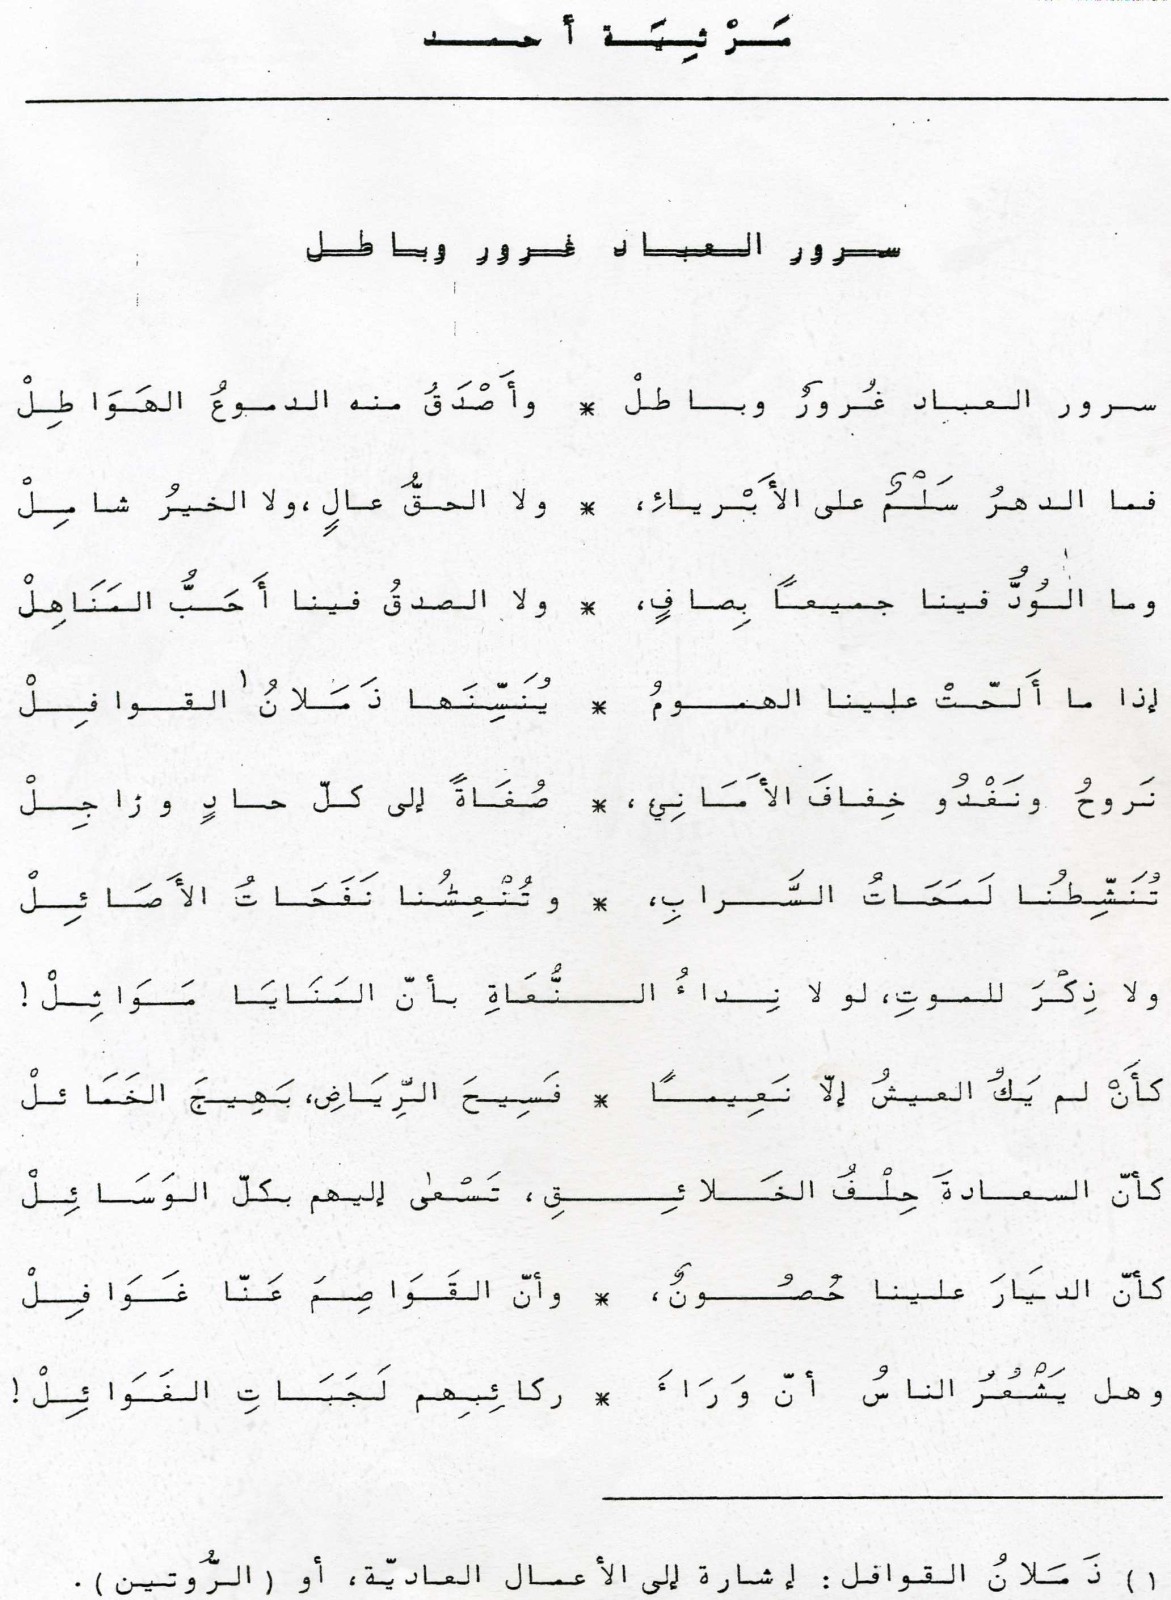 مَرْثِيَة أحمد
سرور العباد غرور وباطل
سرور العباد غُرورٌ وباطلْ * وأَصْدَقُ منه الدموعُ الهَوَاطِلْ
فما الدهرُ سَلْمٌ على الأَبْرياءِ، * ولا الحقُّ عالٍ، ولا الخيرُ شامِلْ
وما الوُدُّ فينا جميعاً بِصافٍ، * ولا الصدقُ فينا أَحَبُّ المَنَاهِلْ
إذا ما أَلحّتْ علينا الهمومُ * يُنَسِّنَها ذَمَلانُ١ القوافِلْ
نَروحُ ونَغْدُو خِفافَ الأمَانِي، * صُغَاةً إلى كلّ حادٍ وزاجِلْ
تُنَشِّطُنا لَمَحَاتُ السَّرابِ، * وتُنْعِشُنا نَفَحَاتُ الأَصَائِلْ
ولا ذِكْرَ للموتِ، لولا نِداءُ النُّعَاةِ بأنّ المَنَايَا مَوَاثِلْ!
كأَنْ لم يَكُ العيشُ إلّا نَعِيماً * فَسِيحَ الرِّيَاضِ، بَهِيجَ الخَمَائلْ
كأنّ السعادةَ حِلْفُ الخَلائِقِ، تَسْعَى إليهم بكلّ الوَسَائِلْ
كأنّ الديَارَ علينا حُصُونٌ، * وأنّ القَوَاصِمَ عَنّا غَوَافِلْ
وهل يَشْعُرُ الناسُ أنّ وَرَاءَ * ركائِبِهم لَجَبَاتِ الغَوَائِلْ!
١) ذَمَلانُ القوافل: إشارة إلى الأعمال العاديّة، أو (الرُّوتين).